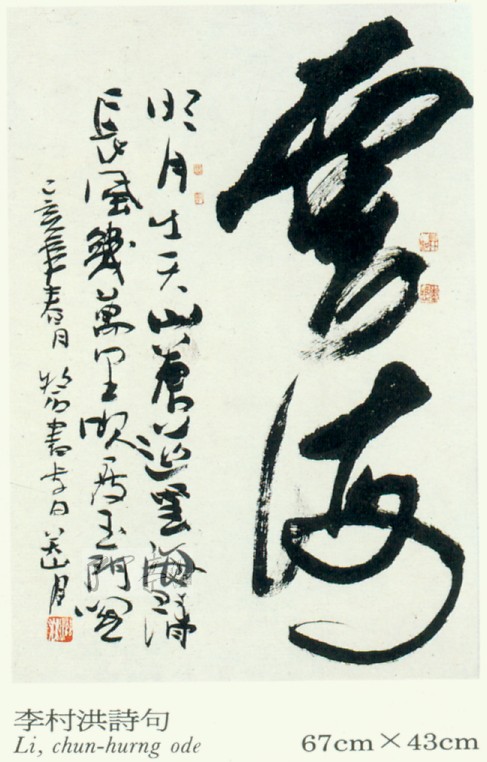 雲海
明月出天山蒼茫雲海間
長風幾萬里吹度玉門關
乙亥年春月書李白关山月
李村洪詩句
Li, chun-hurng ode
67cm×43cm